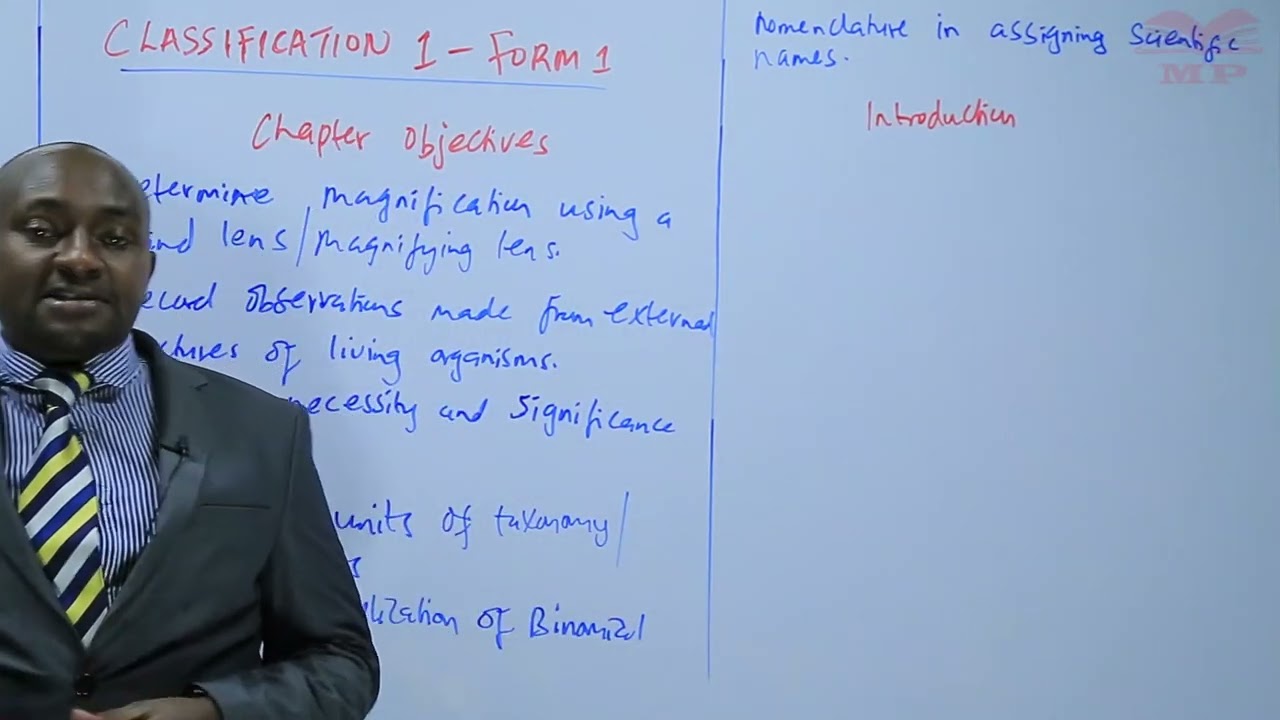 CLASSIFICATION 1 - FORM 1
Chapter Objectives
etermine magnification using a
and lens/magnifying lens.
ecord observations made from external
ctures of living organisms.
necessity and significance
units of taxonomy/
s
lization of Binomial
nomenclature in assigning Scientific
names.
Introduction
MP